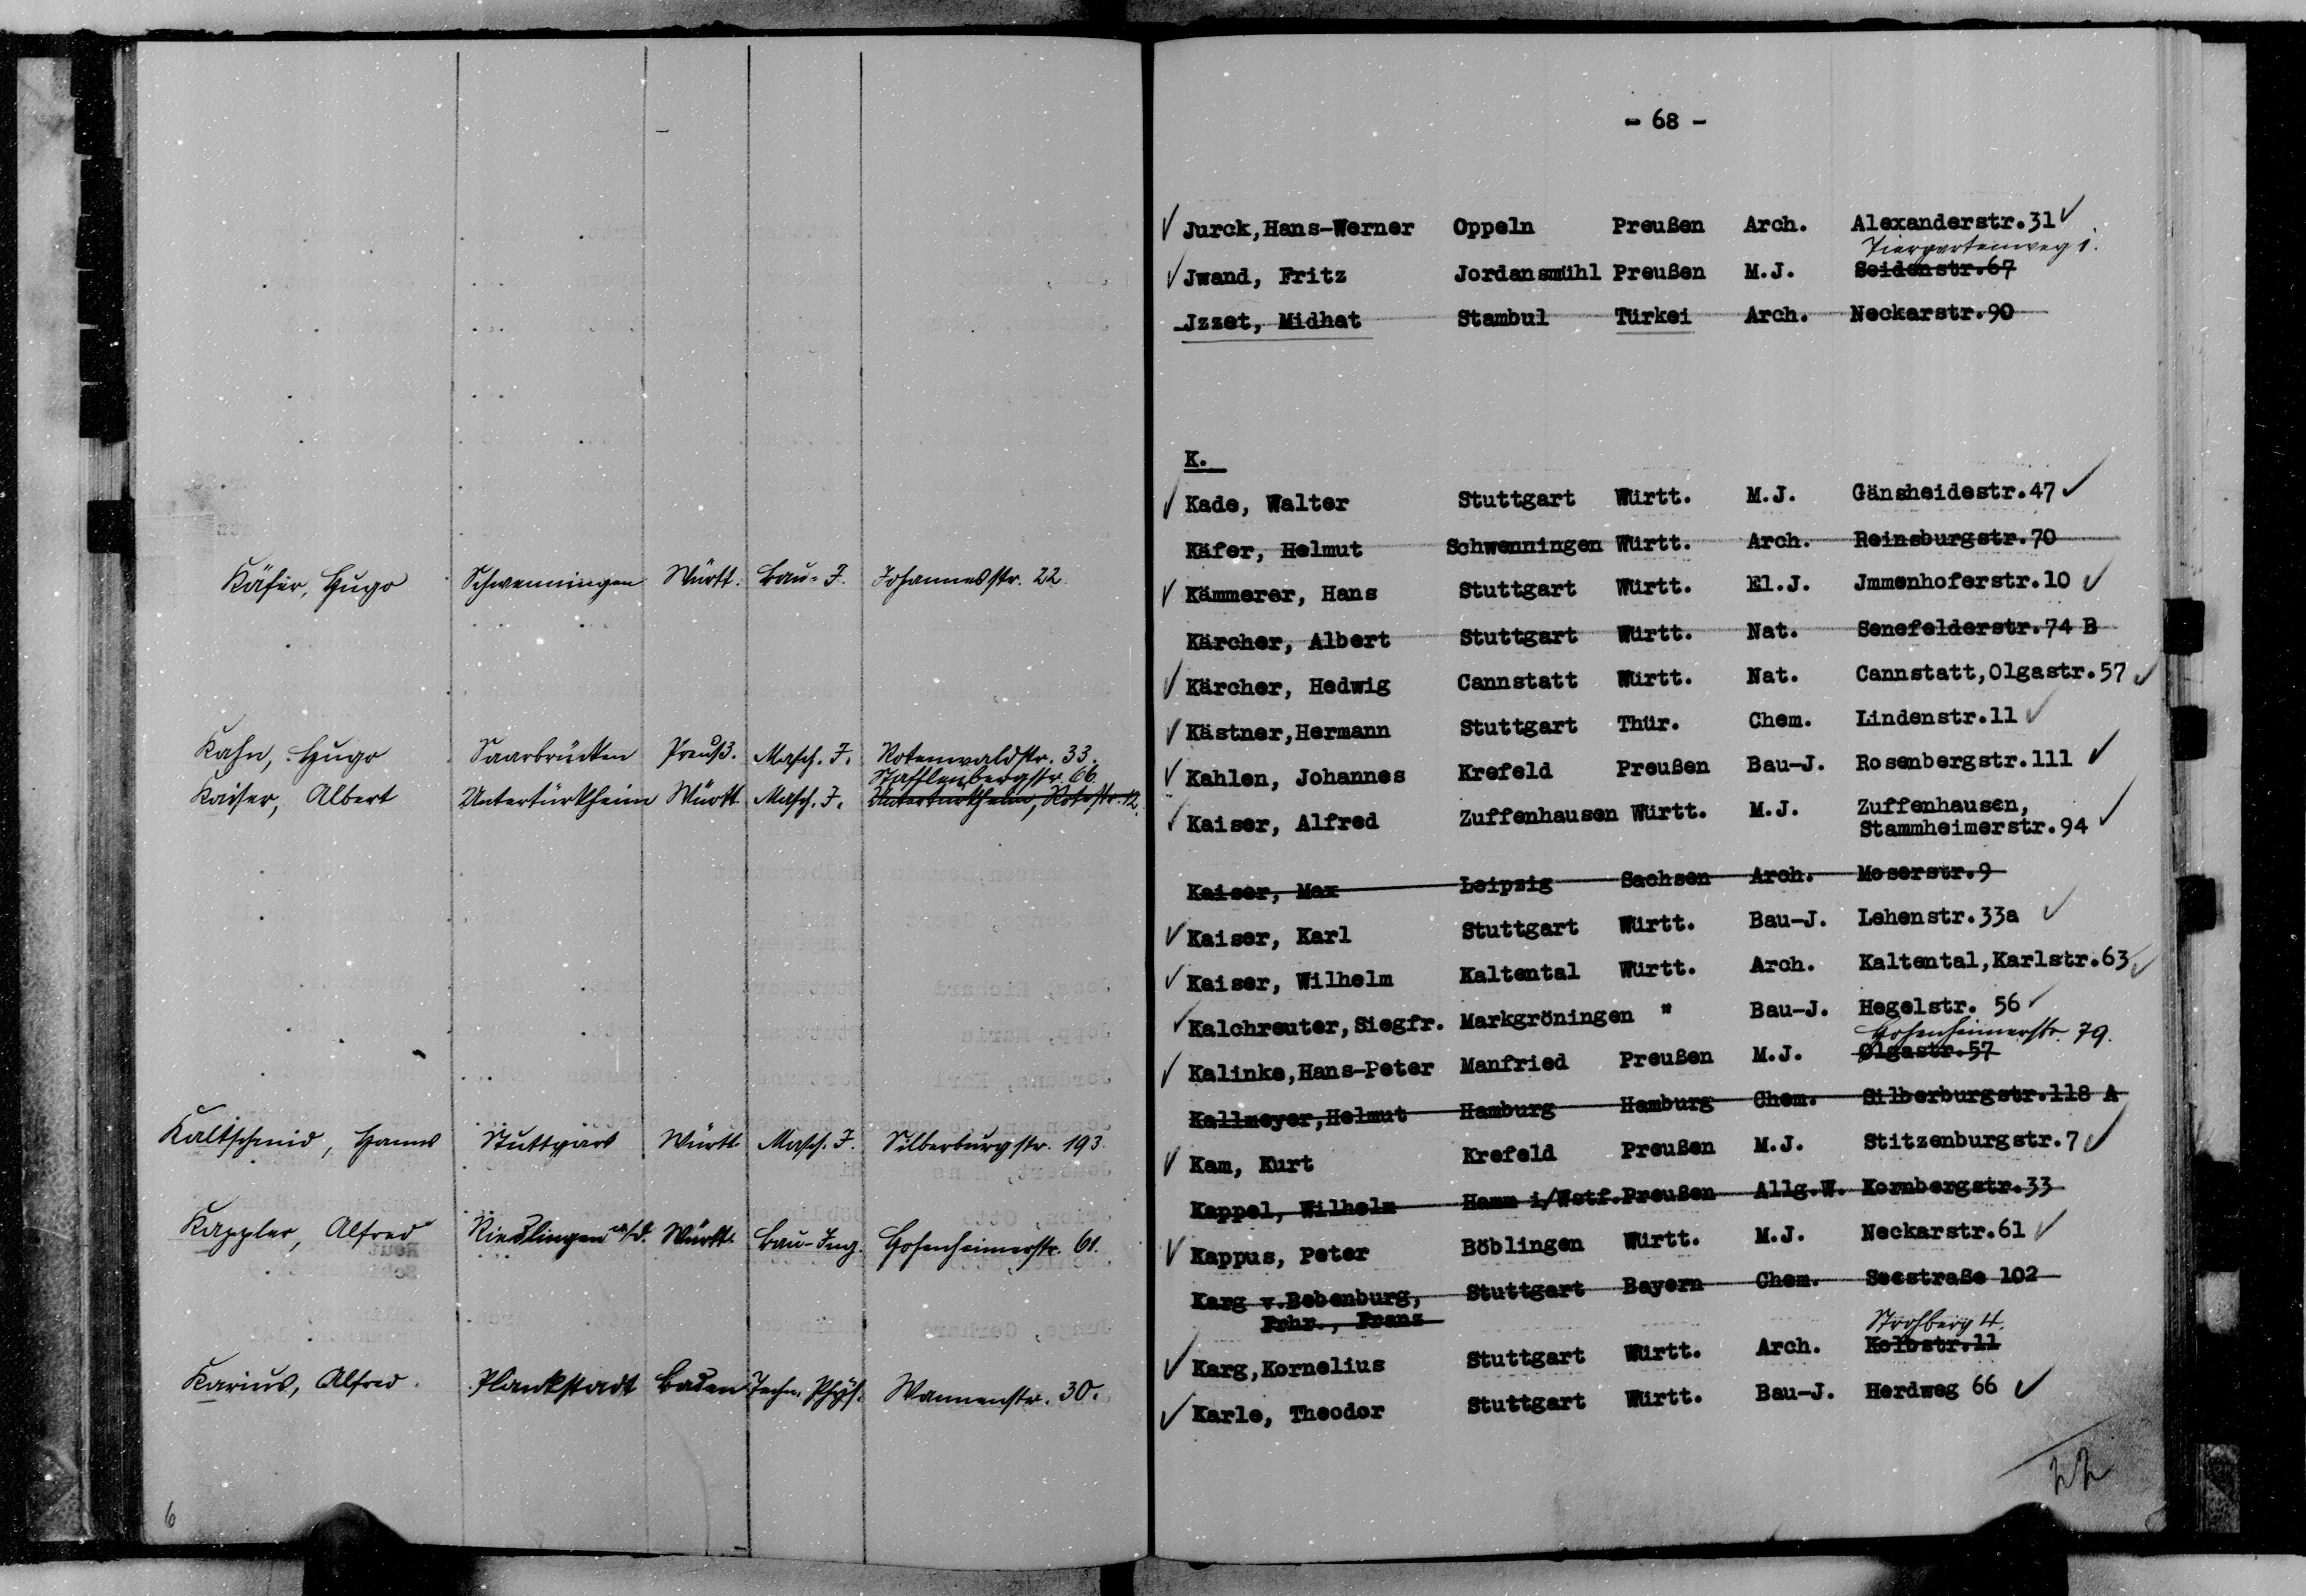 Käfer, Hugo Schwenningen Württ. Bau-J. Johannesstr. 22.
Kahn, Hugo Saarbrücken Preuß. Masch. J. Rotenwaldstr. 33.
Stafflenbergstr. 66
Kaiser, Albert Untertürkheim Württ. Masch. J. Untertürkheim, Rotestr. 12.
Kaltschmid, Hanns Stuttgart Württ. Masch. J. Silberburgstr. 193.
Kappler, Alfred Riedlingen a/d. Württ. Bau-Ing. Hohenheimerstr. 61.
Karius, Alfred. Plankstadt Baden Techn. Phys. Wannenstr. 30.
6
- 68 -
Jurck,Hans-Werner Oppeln Preußen Arch. Alexanderstr.31
Tiergartenweg 1.
Jwand, Fritz Jordansmühl Preußen M.J. Seidenstr.67
Jzzet, Midhat Stambul Türkei Arch. Neckarstr.90
K.
Kade, Walter Stuttgart Württ. M.J. Gänsheidestr.47
Käfer, Helmut Schwenningen Württ. Arch. Reinsburgstr.70
Kämmerer, Hans Stuttgart Württ. El.J. Jmmenhoferstr.10
Kärcher, Albert Stuttgart Württ. Nat. Senefelderstr.74 B
Kärcher, Hedwig Cannstatt Württ. Nat. Cannstatt,Olgastr.57
Kästner,Hermann Stuttgart Thür. Chem. Lindenstr.11
Kahlen, Johannes Krefeld Preußen Bau-J. Rosenbergstr.111
Kaiser, Alfred Zuffenhausen Württ. M.J. Zuffenhausen,
Stammheimerstr.94
Kaiser, Max Leipzig Sachsen Arch. Moserstr.9
Kaiser, Karl Stuttgart Württ. Bau-J. Lehenstr.33a
Kaiser, Wilhelm Kaltental Württ. Arch. Kaltental,Karlstr.63
Kalchreuter,Siegfr. Markgröningen " Bau-J. Hegelstr. 56
Hohenheimerstr. 79.
Kalinke,Hans-Peter Manfried Preußen M.J. Olgastr.57
Kallmeyer,Helmut Hamburg Hamburg Chem. Silberburgstr.118 A
Kam, Kurt Krefeld Preußen M.J. Stitzenburgstr.7
Kappel, Wilhelm Hamm i/Wstf.Preußen Allg.W. Kornbergstr.33
Kappus, Peter Böblingen Württ. M.J. Neckarstr.61
Karg v.Bebenburg, Stuttgart Bayern Chem. Seestraße 102
Frhr., Franz
Strohberg 4.
Karg,Kornelius Stuttgart Württ. Arch. Kolbstr.11
Karle, Theodor Stuttgart Württ. Bau-J. Herdweg 66
22